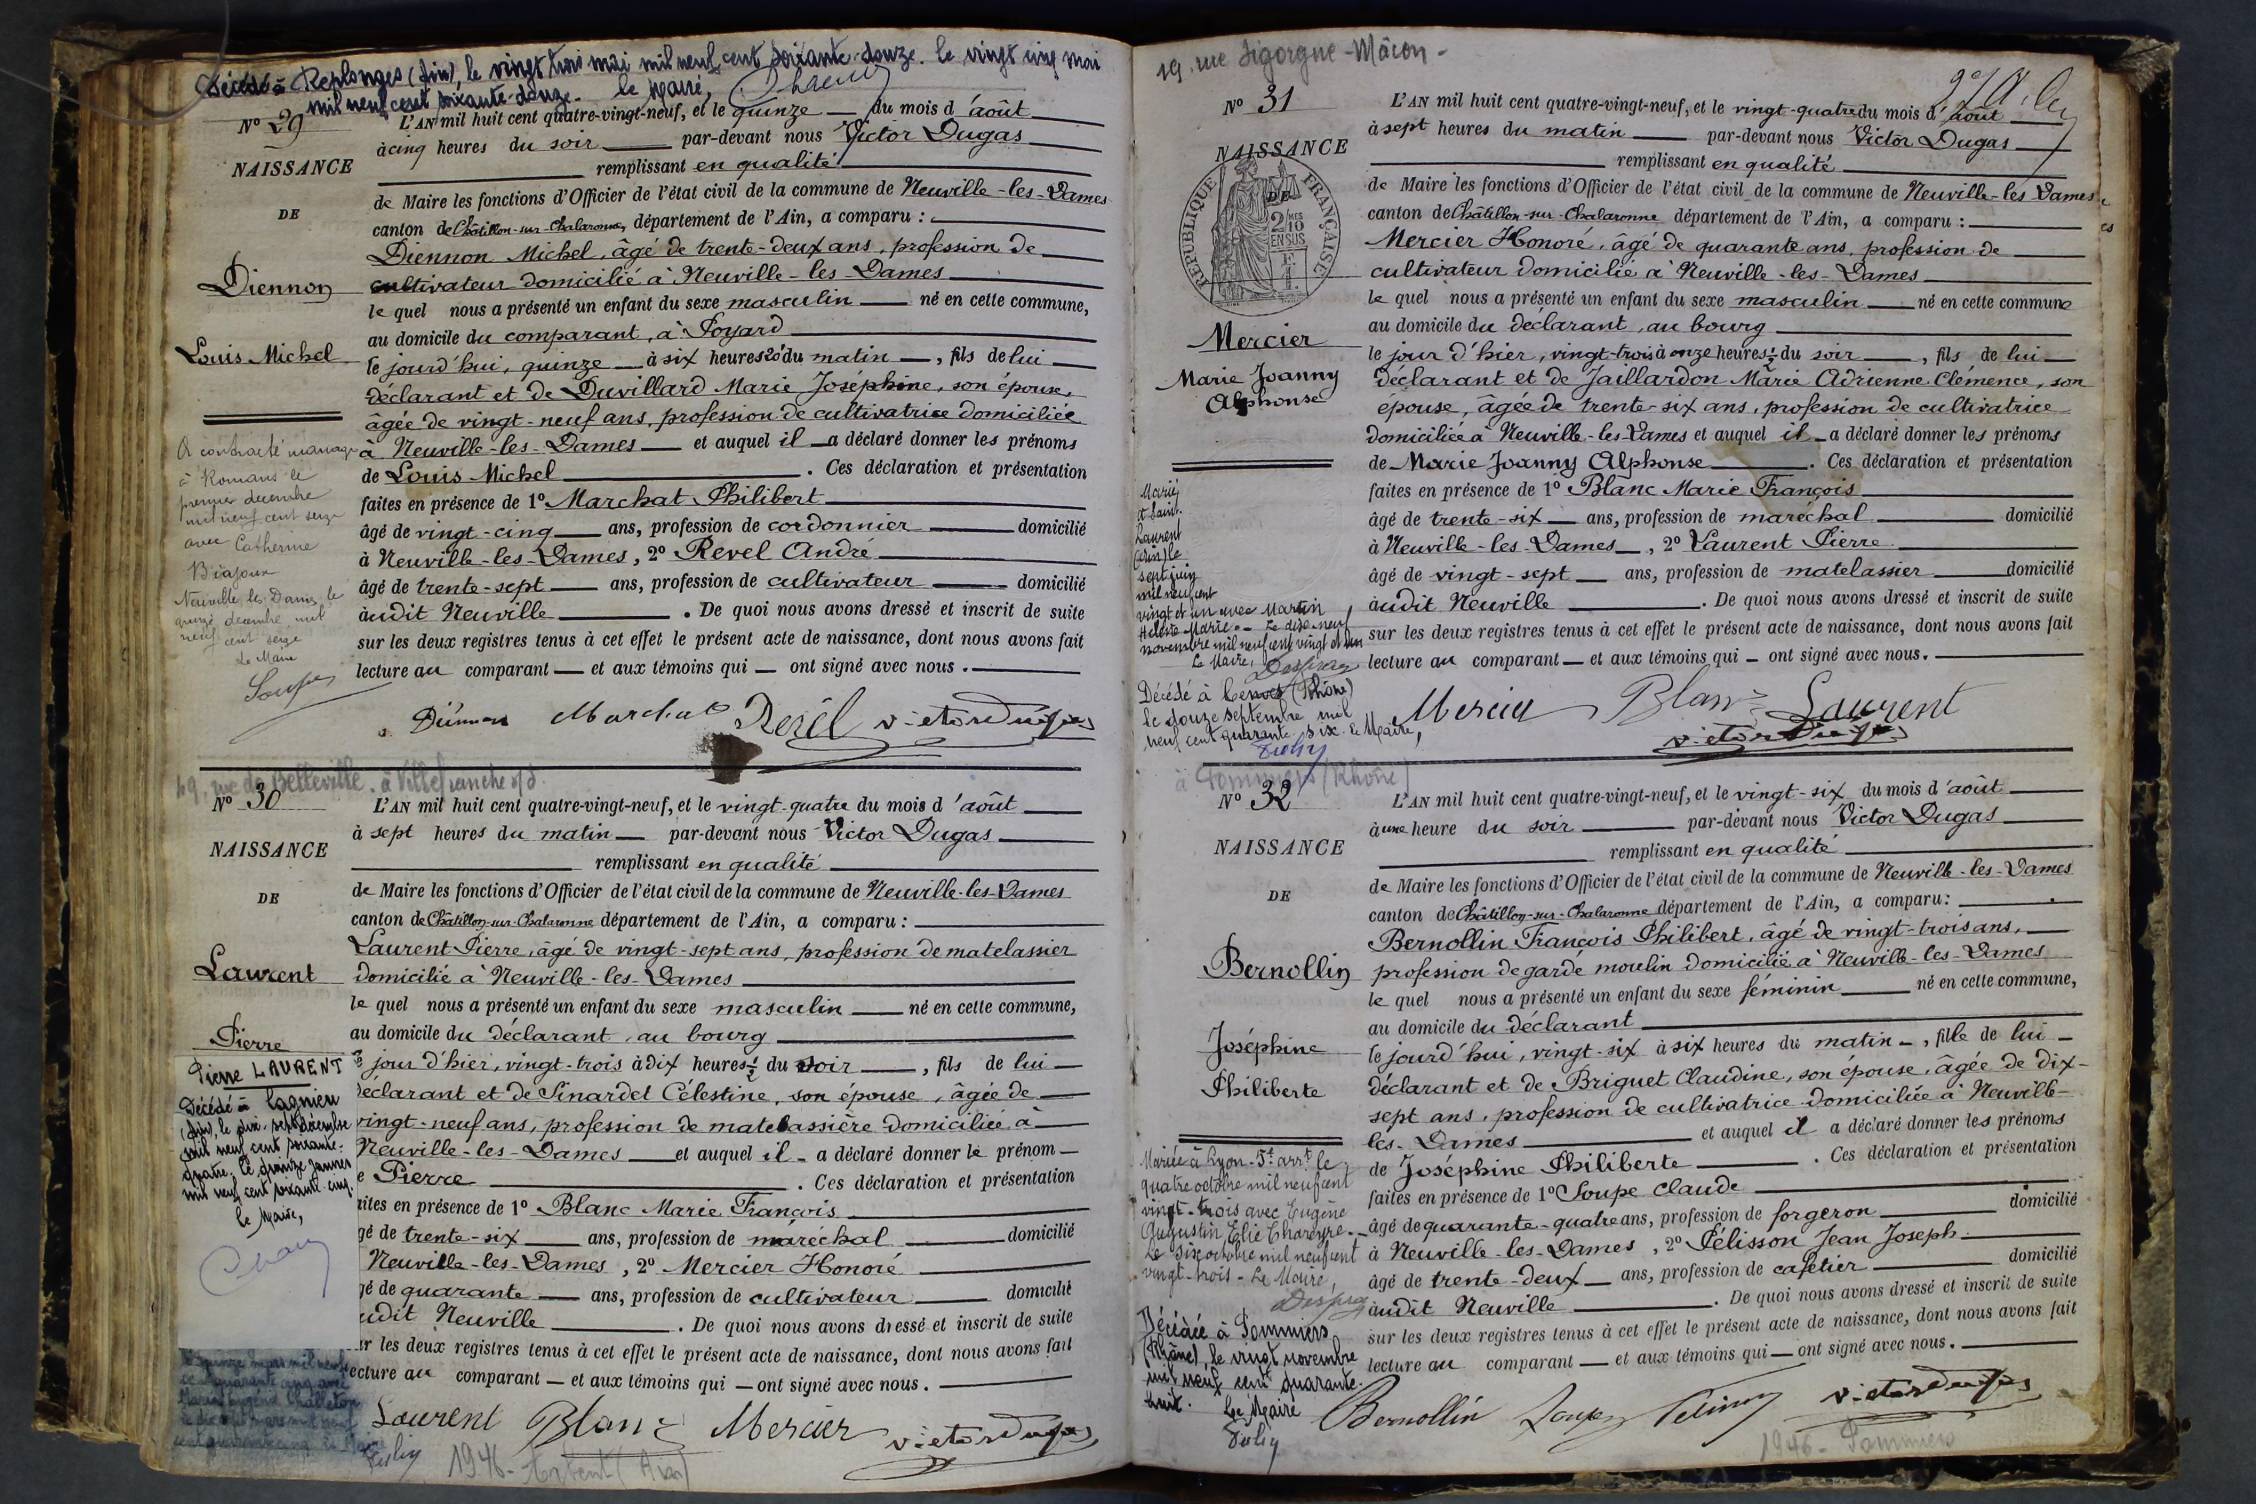 Décédé à Replonges (Ain), le vingt trois mai mil neuf cent soixante-douze. le vingt cinq mai
mil neuf cent soixante-douze. le Maire,
N° 29
NAISSANCE
DE
Diennon
Louis Michel
L'AN mil huit cent quatre-vingt-neuf, et le quinze du mois d'août
à cinq heures du soir par-devant nous Victor Dugas
remplissant en qualité
de Maire les fonctions d'Officier de l'état civil de la commune de Neuville-les-Dames
canton de Châtillon-sur-Chalaronne, département de l'Ain, a comparu :
Diennon Michel, âgé de trente-deux ans, profession de
cultivateur domicilié à Neuville-les-Dames
le quel nous a présenté un enfant du sexe masculin né en cette commune,
au domicile du comparant, à Poyard
le jourd'hui, quinze à six heures 20' du matin, fils de lui
déclarant et de Duvillard Marie Joséphine, son épouse,
âgée de vingt-neuf ans, profession de cultivatrice domiciliée
à Neuville-les-Dames et auquel il a déclaré donner les prénoms
de Louis Michel. Ces déclaration et présentation
faites en présence de 1° Marchat Philibert
âgé de vingt-cinq ans, profession de cordonnier domicilié
à Neuville-les-Dames, 2° Revel André
âgé de trente-sept ans, profession de cultivateur domicilié
àudit Neuville. De quoi nous avons dressé et inscrit de suite
sur les deux registres tenus à cet effet le présent acte de naissance, dont nous avons fait
lecture au comparant et aux témoins qui ont signé avec nous.
A contracté mariage
à Romans le
premier décembre
mil neuf cent seize
avec Catherine
Bajoux
Neuville les Dames, le
quinze décembre mil
neuf cent seize
Le Maire
Soupe
Diennon Marchat Revel Victor Dugas
49, rue de Belleville. à Villefranche s/s.
N° 30
NAISSANCE
DE
Laurent
Pierre
L'AN mil huit cent quatre-vingt-neuf, et le vingt-quatre du mois d'août
à sept heures du matin par-devant nous Victor Dugas
remplissant en qualité
de Maire les fonctions d'Officier de l'état civil de la commune de Neuville-les-Dames
canton de Châtillon-sur-Chalaronne département de l'Ain, a comparu :
Laurent Pierre, âgé de vingt-sept ans, profession de matelassier
domicilié à Neuville-les-Dames
le quel nous a présenté un enfant du sexe masculin né en cette commune,
au domicile du déclarant, au bourg
jour d'hier, vingt-trois à dix heures ½ du soir, fils de lui
déclarant et de Sinardet Célestine, son épouse, âgée de
vingt-neuf ans, profession de matelassière domiciliée à
Neuville-les-Dames et auquel il a déclaré donner le prénom
e Pierre. Ces déclaration et présentation
aites en présence de 1° Blanc Marie François
gé de trente-six ans, profession de maréchal domicilié
Neuville-les-Dames, 2° Mercier Honoré
gé de quarante ans, profession de cultivateur domicilié
udit Neuville. De quoi nous avons dressé et inscrit de suite
ur les deux registres tenus à cet effet le présent acte de naissance, dont nous avons fait
ecture au comparant et aux témoins qui ont signé avec nous.
Pierre LAURENT
Décédé à Lagnieu
(Ain), le dix-sept décembre
mil neuf cent soixante-
quatre. le quinze janvier
mil neuf cent soixante cinq.
le Maire,
quinze mars mil neuf
cent quarante cinq avec
Marie Eugénie Chalreton
le dix huit mars mil neuf
cent quarante cinq. Le Maire
Laurent Blanc Mercier Victor Dugas
1946 - (Ain)
19, rue Sigorgne - Mâcon -
N° 31
NAISSANCE
DE
RÉPUBLIQUE FRANÇAISE
2/10 EN SUS
Mercier
Marie Joanny
Alphonse
L'AN mil huit cent quatre-vingt-neuf, et le vingt-quatre du mois d'août
à sept heures du matin par-devant nous Victor Dugas
remplissant en qualité
de Maire les fonctions d'Officier de l'état civil de la commune de Neuville-les-Dames
canton de Châtillon-sur-Chalaronne département de l'Ain, a comparu :
Mercier Honoré, âgé de quarante ans, profession de
cultivateur domicilié à Neuville-les-Dames
le quel nous a présenté un enfant du sexe masculin né en cette commune
au domicile du déclarant, au bourg
le jour d'hier, vingt-trois à onze heures ½ du soir, fils de lui
déclarant et de Jaillardon Marie Adrienne Clémence, son
épouse, âgée de trente-six ans, profession de cultivatrice
domiciliée à Neuville-les-Dames et auquel il a déclaré donner les prénoms
de Marie Joanny Alphonse. Ces déclaration et présentation
faites en présence de 1° Blanc Marie François
âgé de trente-six ans, profession de maréchal domicilié
à Neuville-les-Dames, 2° Laurent Pierre
âgé de vingt-sept ans, profession de matelassier domicilié
àudit Neuville. De quoi nous avons dressé et inscrit de suite
sur les deux registres tenus à cet effet le présent acte de naissance, dont nous avons fait
lecture au comparant et aux témoins qui ont signé avec nous.
Marié
à Saint-
Laurent
(Ain) le
sept juin
mil neuf cent
vingt et un avec Martin
Hélène Marie. - Le dix neuf
novembre mil neuf cent vingt et un
Le Maire,
Décédé à (Rhône)
le douze septembre mil
neuf cent quarante six. Le Maire,
Mercier Blanc Laurent
Victor Dugas
à Pommiers (Rhône)
N° 32
NAISSANCE
DE
Bernollin
Joséphine
Philiberte
L'AN mil huit cent quatre-vingt-neuf, et le vingt-six du mois d'août
à une heure du soir par-devant nous Victor Dugas
remplissant en qualité
de Maire les fonctions d'Officier de l'état civil de la commune de Neuville-les-Dames
canton de Châtillon-sur-Chalaronne département de l'Ain, a comparu :
Bernollin François Philibert, âgé de vingt-trois ans,
profession de garde moulin domicilié à Neuville-les-Dames
le quel nous a présenté un enfant du sexe féminin né en cette commune,
au domicile du déclarant
le jourd'hui, vingt-six à six heures du matin, fille de lui
déclarant et de Briguet Claudine, son épouse, âgée de dix-
sept ans, profession de cultivatrice domiciliée à Neuville-
les-Dames et auquel il a déclaré donner les prénoms
de Joséphine Philiberte. Ces déclaration et présentation
faites en présence de 1° Soupe Claude
âgé de quarante-quatre ans, profession de forgeron domicilié
à Neuville-les-Dames, 2° Pélisson Jean Joseph
âgé de trente-deux ans, profession de cafetier domicilié
àudit Neuville. De quoi nous avons dressé et inscrit de suite
sur les deux registres tenus à cet effet le présent acte de naissance, dont nous avons fait
lecture au comparant et aux témoins qui ont signé avec nous.
Mariée à Lyon-5e arrt le
quatre octobre mil neuf cent
vingt-trois avec Eugène
Augustin Elie Chareyre.
Le six octobre mil neuf cent
vingt-trois - Le Maire,
Décédée à Pommiers
(Rhône), le vingt novembre
mil neuf cent quarante-
huit. Le Maire
Bernollin Soupe Pélisson Victor Dugas
1946 - Pommiers